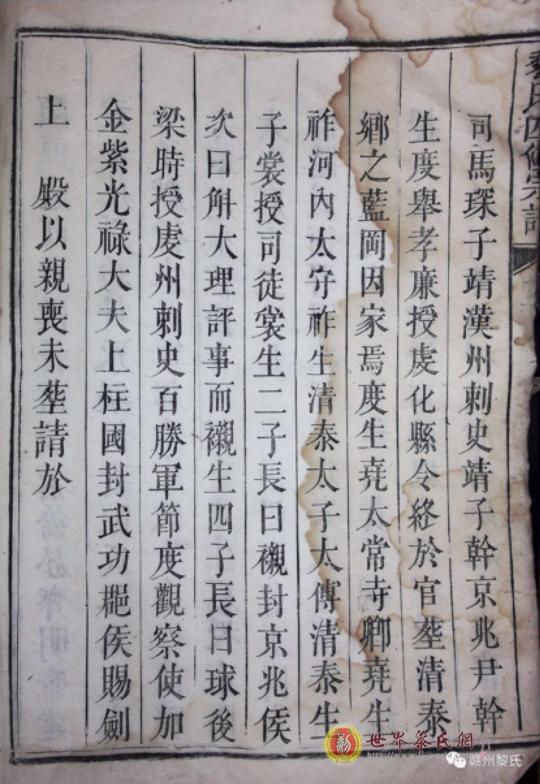 黎氏四修宗譜
司馬琛子靖漢州刺史靖子幹京兆尹幹
生度舉孝廉授虔化縣令終於官塟清泰
鄉之藍岡因家焉度生堯太常寺卿堯生
祚河內太守祚生清泰太子太傅清泰生
子裳授司徒裳生二子長曰襯封京兆侯
次曰斛大理評事而襯生四子長曰球後
梁時授虔州刺史百勝軍節度觀察使加
金紫光祿大夫上柱國封武功郡侯賜劍
上 殿以親喪未塟請於
世界黎氏網
嬉州黎氏